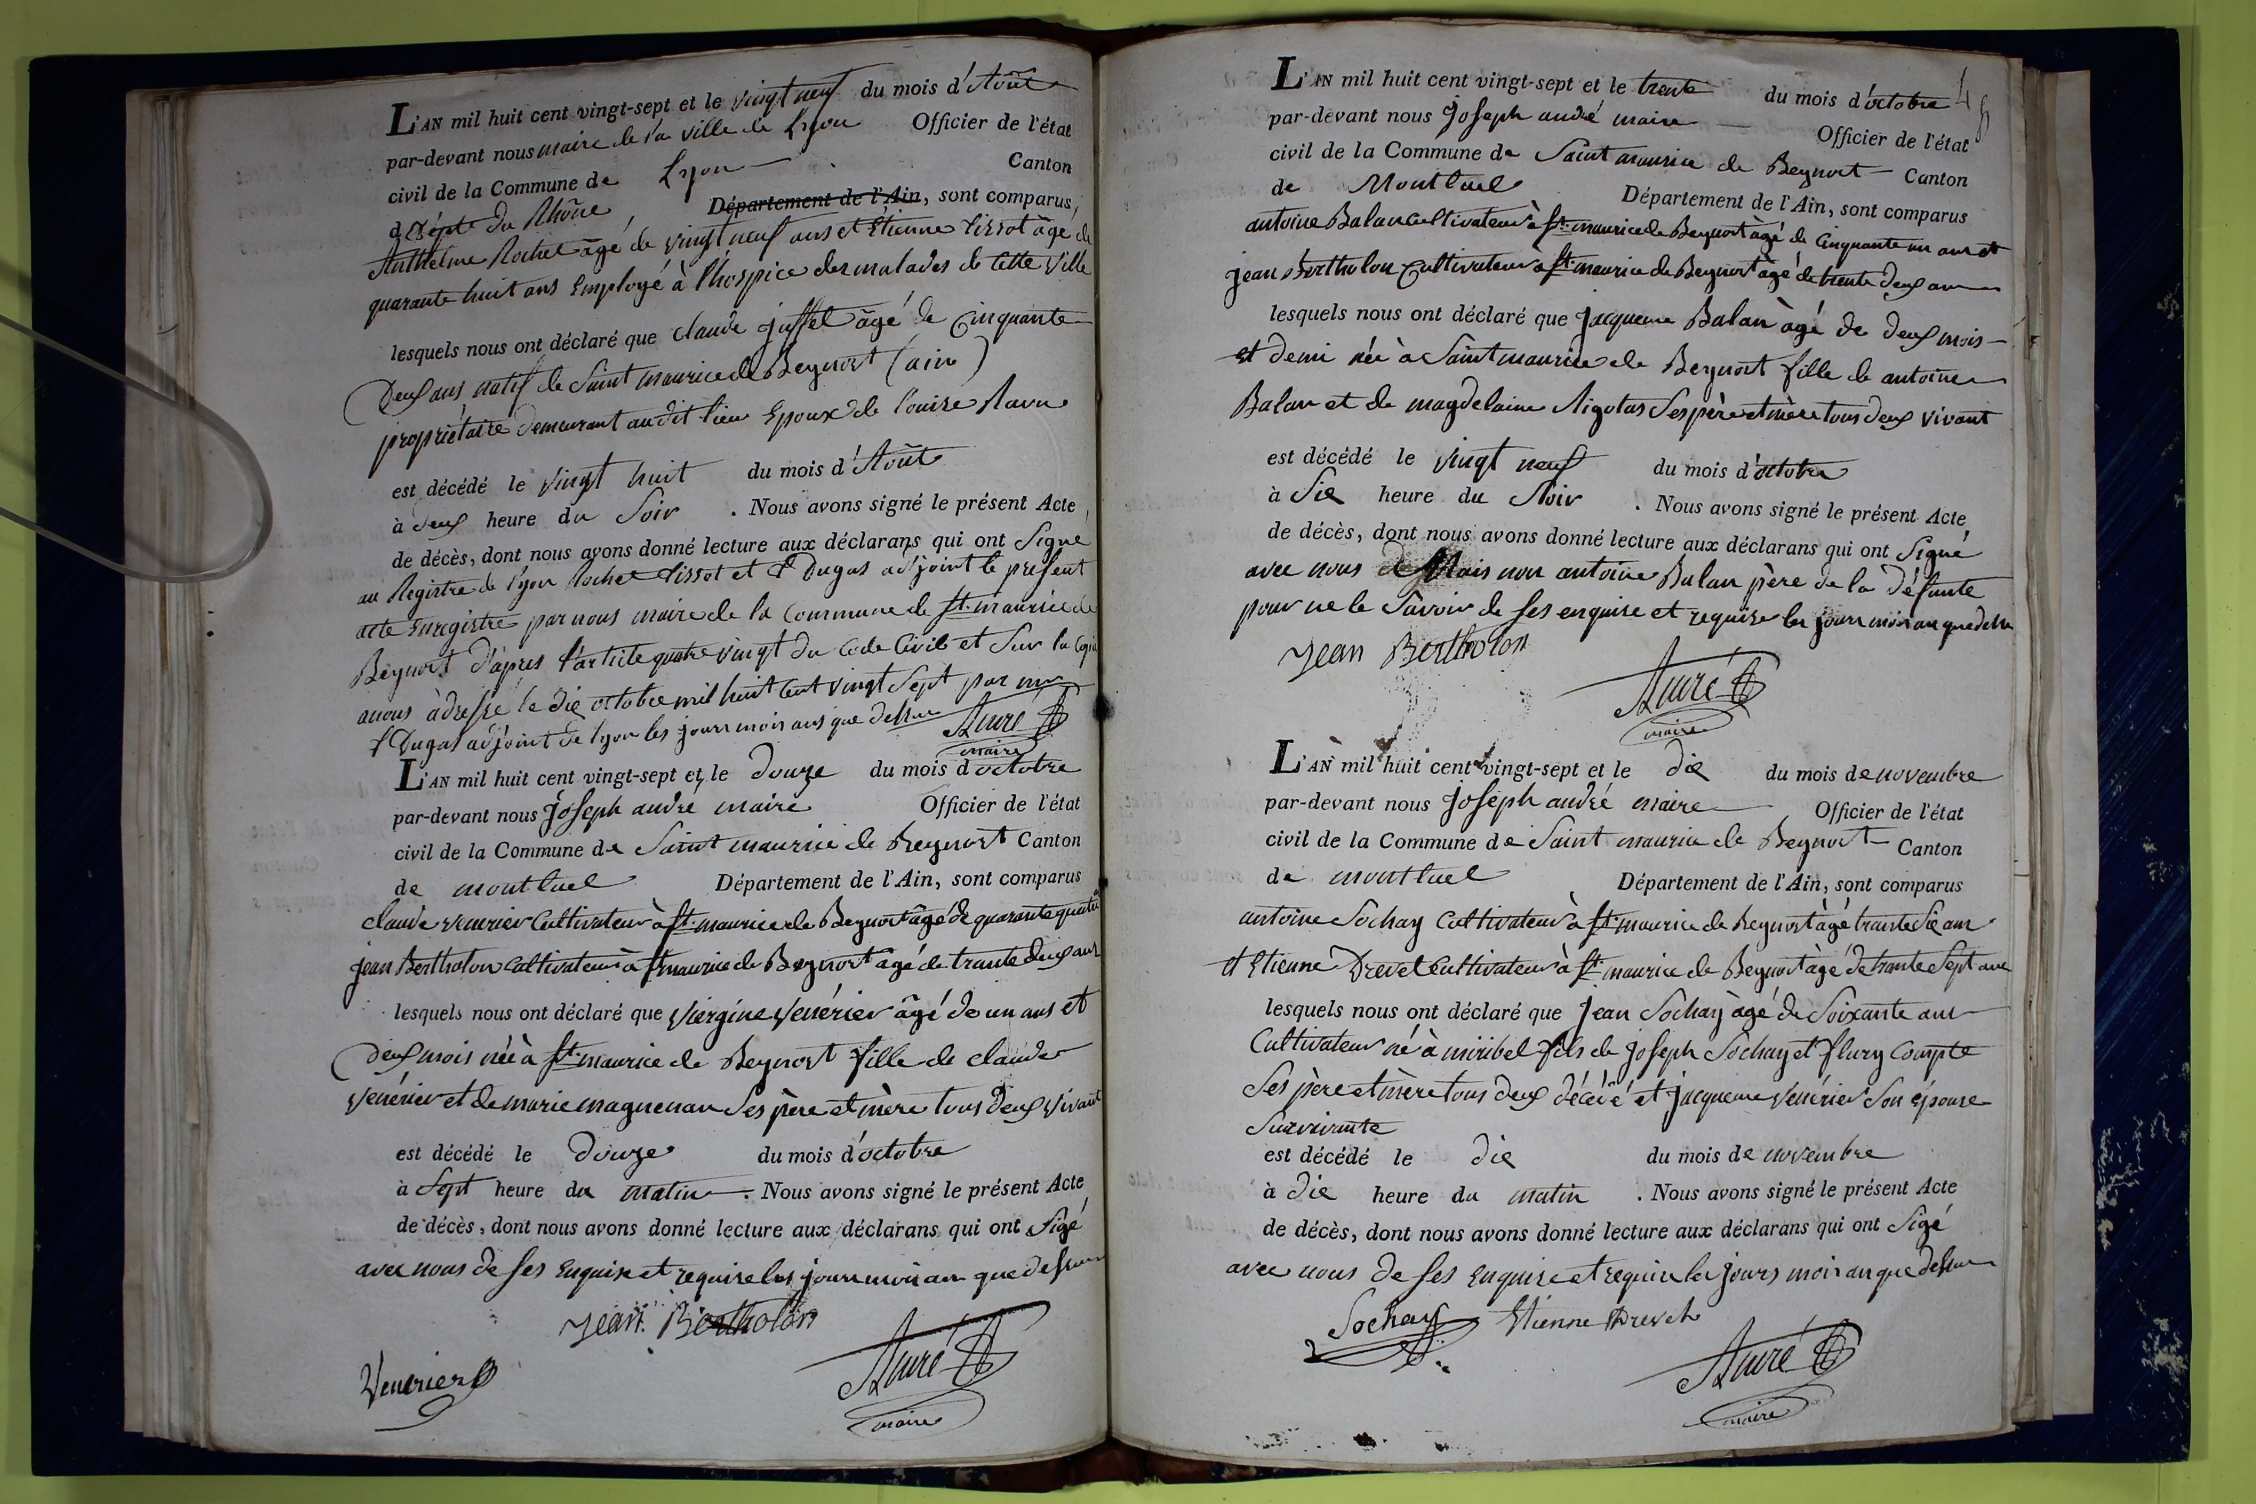 L'AN mil huit cent vingt-sept et le vingt neuf du mois d'Août
par-devant nous maire de la ville de Lyon Officier de l'état
civil de la Commune de Lyon Canton
dépt du Rhône Département de l'Ain, sont comparus
Anthelme Rochet âgé de vingt neuf ans et Etienne Tissot âgé de
quarante huit ans Employé à l'hospice des malades de Cette Ville
lesquels nous ont déclaré que claude juffet âgé de Cinquante
Deux ans natif de Saint maurice de Beynost (ain)
propriétaire demeurant audit lieu Epoux de louise Ravu
est décédé le vingt huit du mois d'Août
à deux heure du Soir . Nous avons signé le présent Acte
de décès, dont nous avons donné lecture aux déclarans qui ont Signé
au Registre de Lyon Rochet Tissot et Dugas adjoint le present
acte Enregistré par nous maire de la Commune de St. maurice de
Beynost d'apres l'article quatre vingt du Code Civil et Sur la Copie
anous àdressé le dix octobre mil huit Cent vingt Sept par mr
Dugas adjoint de lyon les jours mois ans que dessus André
maire
L'AN mil huit cent vingt-sept et le douze du mois d octobre
par-devant nous Joseph andré maire Officier de l'état
civil de la Commune de Saint maurice de Beynost Canton
de montluel Département de l'Ain, sont comparus
claude venerier Cultivateur à St. maurice de Beynost âgé de quarante quatre
jean Bertholon Cultivateur à St maurice de Beynost âgé de trante deux ans
lesquels nous ont déclaré que viergine venérier âgé de un ans et
deux mois née à St. maurice de Beynost fille de claude
venérier et de marie magnenan Ses père et mère tous deux vivant
est décédé le douze du mois d'octobre
à Sept heure du matin . Nous avons signé le présent Acte
de décès, dont nous avons donné lecture aux déclarans qui ont Sigé
avec nous de Ses Enquise et requise les jours mois an que dessus
Jean Bertholon
Venerier
André
maire
L'AN mil huit cent vingt-sept et le trente du mois d'octobre
par-devant nous Joseph andré maire Officier de l'état
civil de la Commune de Saint maurice de Beynost Canton
de Montluel Département de l'Ain, sont comparus
antoine Balan Cultivateur à St. maurice de Beynost âgé de Cinquante un ans et
jean Bertholon Cultivateur à St. maurice de Beynost âgé de trente deux ans
lesquels nous ont déclaré que jacqueme Balan àgé de deux mois
et demi née à Saint maurice de Beynost fille de antoine
Balan et de magdelaine Rigotas Ses père et mère tous deux vivant
est décédé le vingt neuf du mois d'octobre
à Six heure du Soir . Nous avons signé le présent Acte
de décès, dont nous avons donné lecture aux déclarans qui ont Signé
avec nous Mais non antoine Balan père de la Défunte
pour ne le Savoir de Ses enquise et requise les jours mois an que dessus
Jean Bertholon
André
maire
L'AN mil huit cent vingt-sept et le dix du mois de novembre
par-devant nous joseph andré maire Officier de l'état
civil de la Commune de Saint maurice de Beynost Canton
de montluel Département de l'Ain, sont comparus
antoine Sochay Cultivateur à St. maurice de Beynost âgé trante Six ans
et Etienne Drevet Cultivateur à St. maurice de Beynost âgé de trante Sept ans
lesquels nous ont déclaré que Jean Sochay àgé de Soixante ans
Cultivateur né à miribel fils de joseph Sochay et flury Compte
Ses père et mère tous deux décédé et jacqueme venérier Son épouse
Survivante
est décédé le dix du mois de novembre
à dix heure du matin . Nous avons signé le présent Acte
de décès, dont nous avons donné lecture aux déclarans qui ont Sigé
avec nous de Ses enquise et requise les jours mois an que dessus
Sochay Etienne Drevet
André
maire